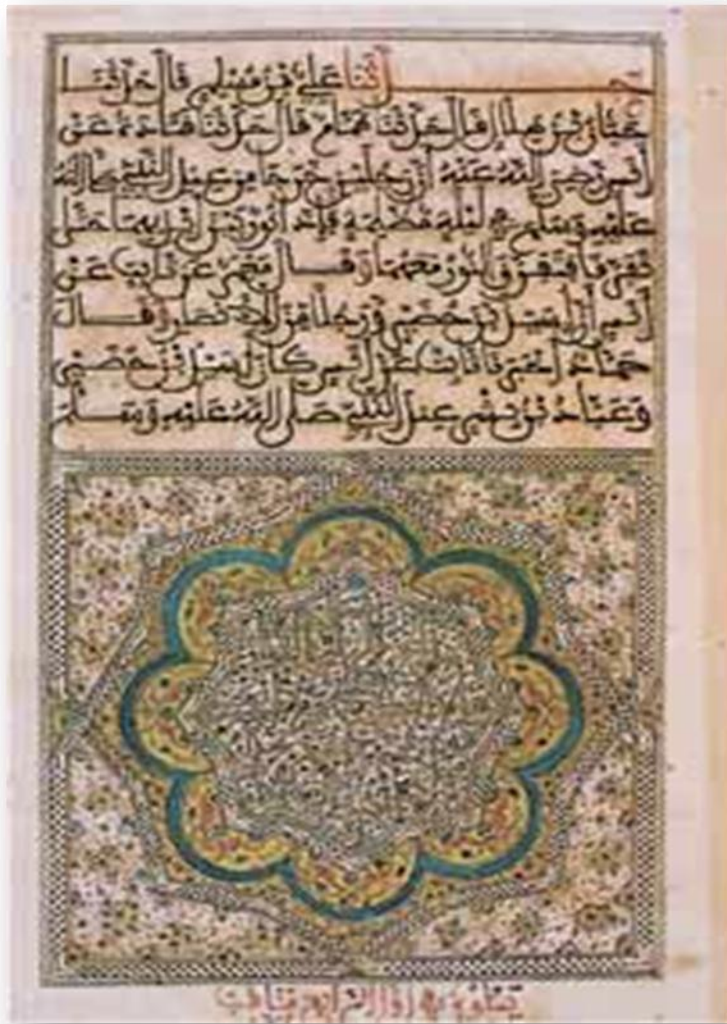 حدثنا علي بن مسلم قال حدثنا
حبان بن هلال قال حدثنا همام قال حدثنا قتادة عن
أنس رضي الله عنه أن رجلين خرجا من عند النبي صلى الله
عليه وسلم في ليلة مظلمة فإذا نور بين أيديهما حتى
تفرقا فتفرق النور معهما وقال معمر عن ثابت عن
أنس أن أسيد بن حضير ورجلا من الأنصار وقال
حماد أخبرنا ثابت عن أنس كان أسيد بن حضير
وعباد بن بشر عند النبي صلى الله عليه وسلم
يتلوه في أول الرابع مناقب